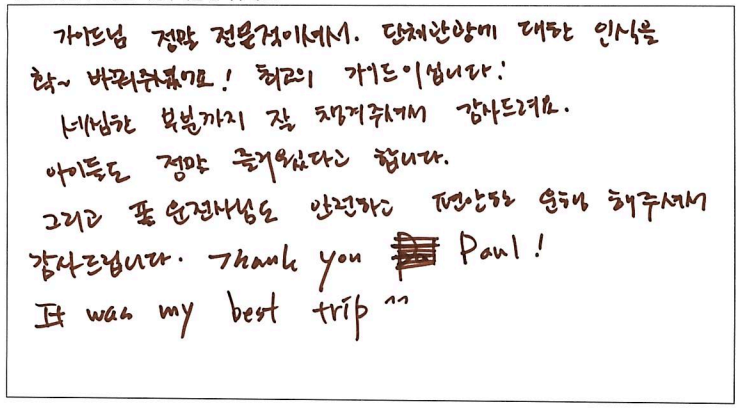 가이드님 정말 전문적이셔서. 단체관광에 대한 인식을
확~ 바꿔주셨어요! 최고의 가이드이십니다!
세심한 부분까지 잘 챙겨주셔서 감사드려요.
아이들도 정말 즐거웠다고 합니다.
그리고 폴 운전사님도 안전하고 편안한 운행 해주셔서
감사드립니다. Thank you Paul!
It was my best trip ^^